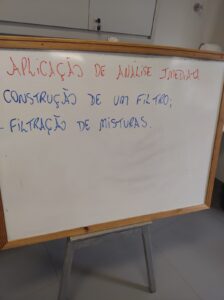 APLICAÇÃO DE ANÁLISE IMEDIATA
CONSTRUÇÃO DE UM FILTRO;
- FILTRAÇÃO DE MISTURAS